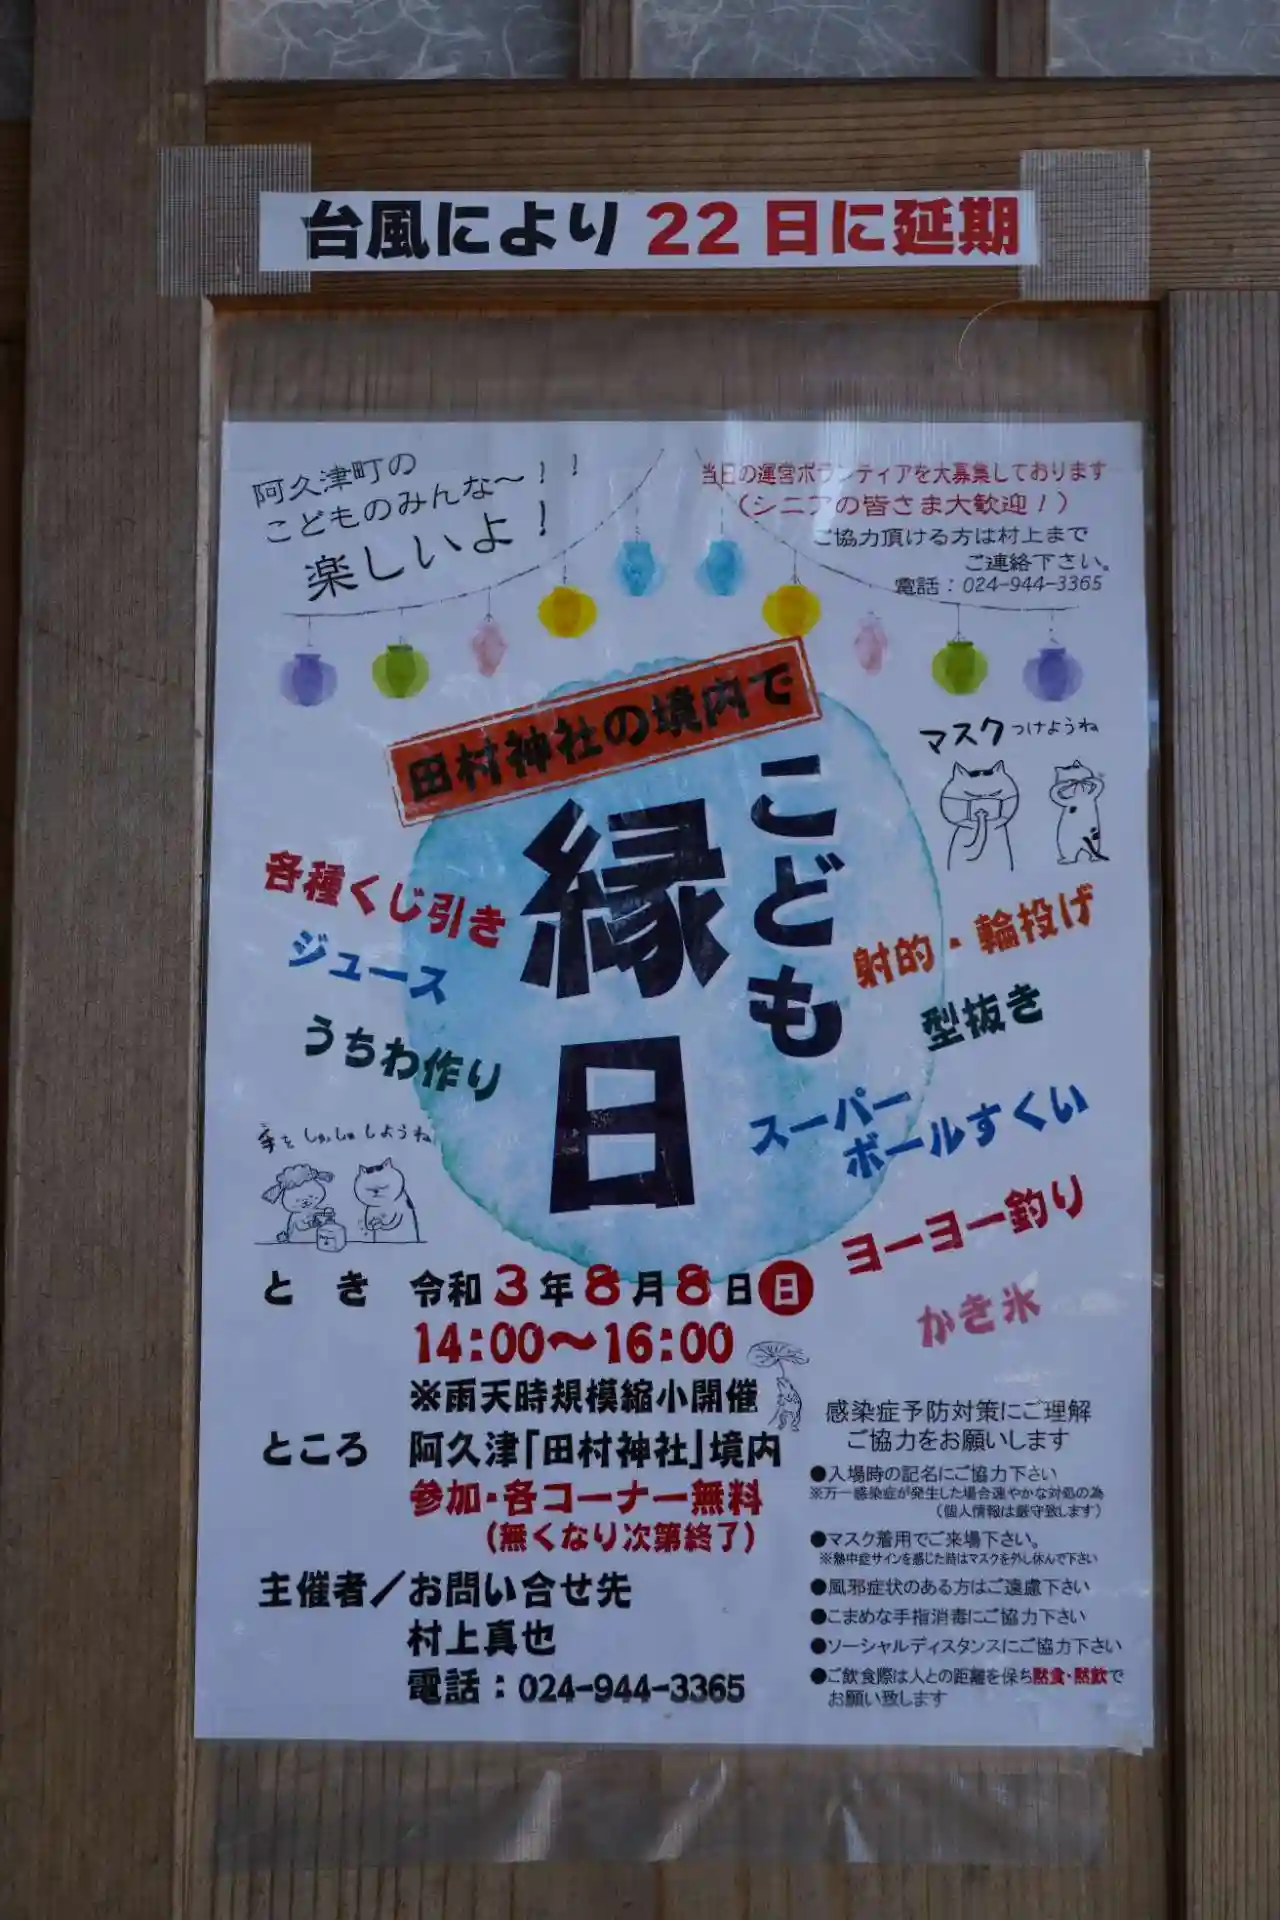 台風により22日に延期
阿久津町の
こどものみんな〜!!
楽しいよ!
当日の運営ボランティアを大募集しております
(シニアの皆さま大歓迎!)
ご協力頂ける方は村上まで
ご連絡下さい。
電話：024-944-3365
田村神社の境内で
こども
縁日
マスクつけようね
各種くじ引き
ジュース
うちわ作り
射的・輪投げ
型抜き
スーパー
ボールすくい
ヨーヨー釣り
かき氷
手をしゅっしゅしようね
とき 令和3年8月8日(日)
14:00〜16:00
※雨天時規模縮小開催
ところ 阿久津「田村神社」境内
参加・各コーナー無料
(無くなり次第終了)
主催者／お問い合せ先
村上真也
電話：024-944-3365
感染症予防対策にご理解
ご協力をお願いします
●入場時の記名にご協力下さい
※万一感染症が発生した場合速やかな対処の為
(個人情報は厳守致します)
●マスク着用でご来場下さい。
※熱中症サインを感じた時はマスクを外し休んで下さい
●風邪症状のある方はご遠慮下さい
●こまめな手指消毒にご協力下さい
●ソーシャルディスタンスにご協力下さい
●ご飲食際は人との距離を保ち黙食・黙飲で
お願い致します